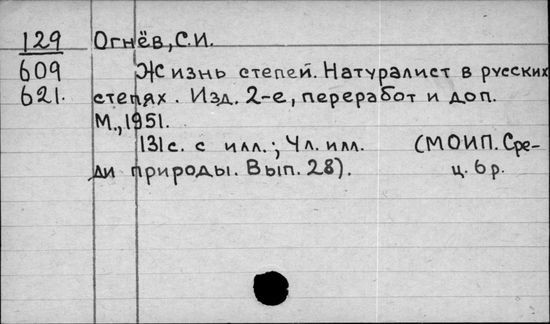 129 Огнёв, С.И.
609 Жизнь степей. Натуралист в русских
621. степях. Изд. 2-е, переработ и доп.
М., 1951.
131с. с илл.; 4л. илл. (МОИП. Сре-
ди природы. Вып. 28). ц. 6р.